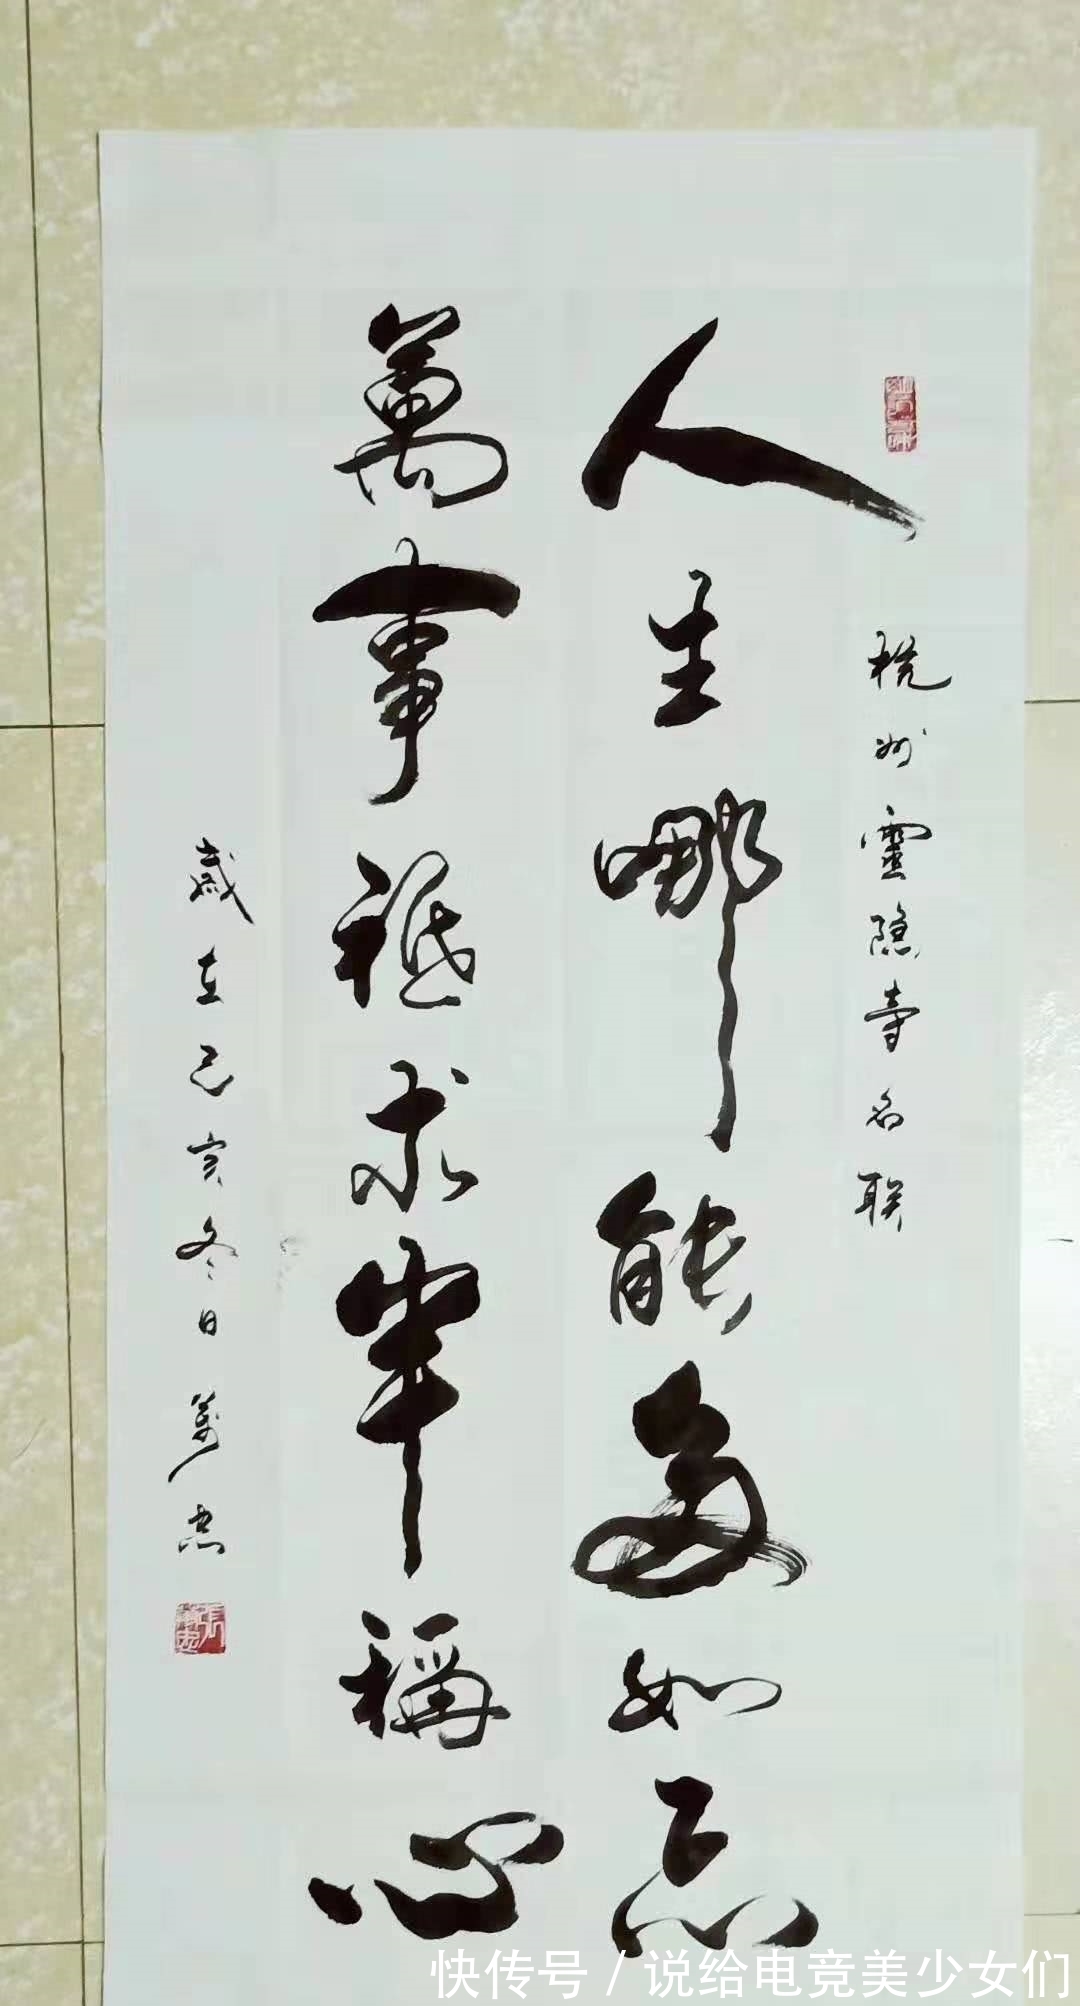 杭州靈隐寺名联
人生哪能多如意
萬事祗求半稱心
歲在己亥冬日萬忠
快传号/说给电竞美少女们